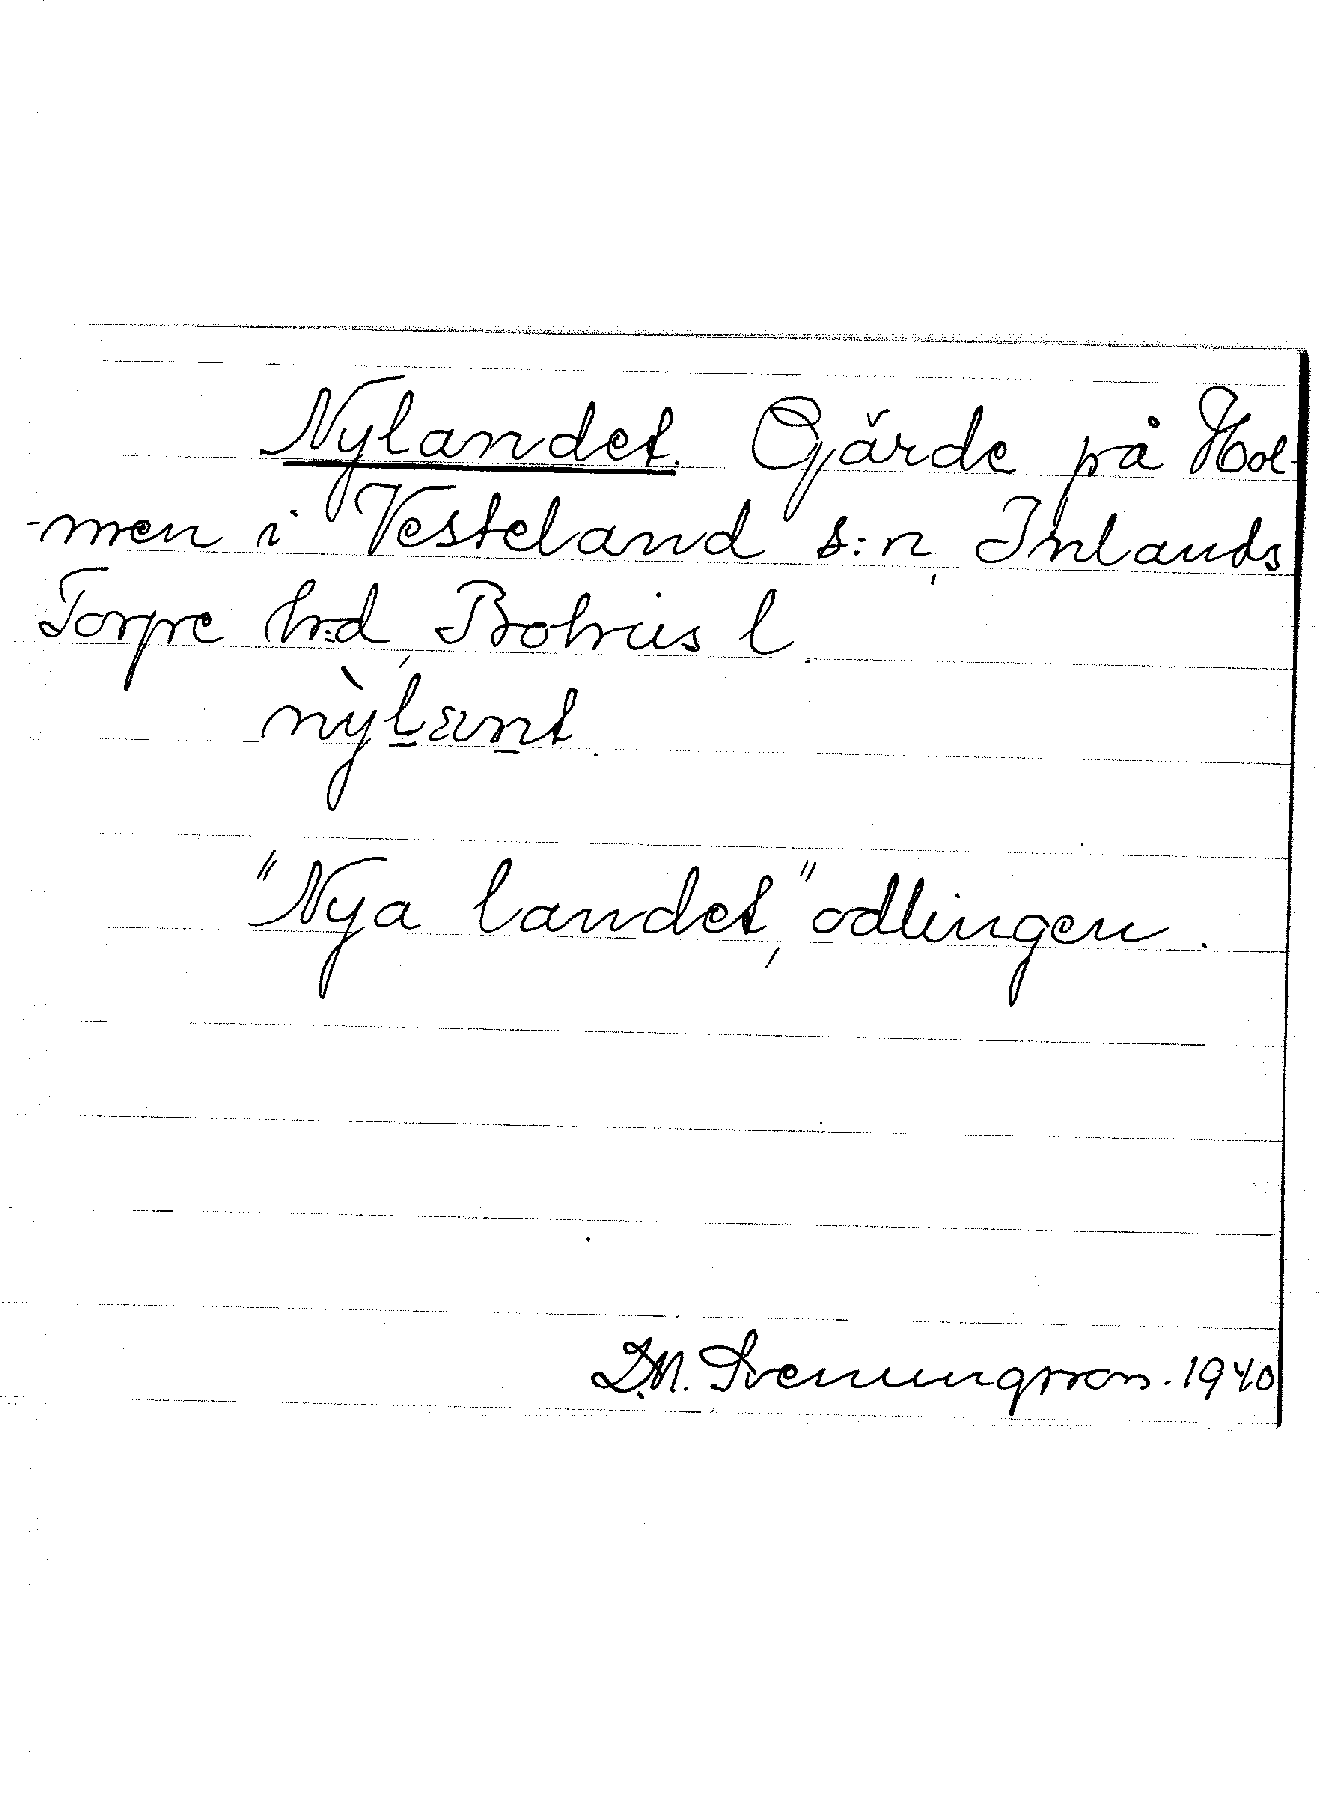 Nylandet. Gärde på Hol-
-men i Vesteland s:n, Inlands
Torpe h:d, Bohus l.
nỳlænt.
"Nya landet," odlingen.
D.M. Svenungsson. 1940